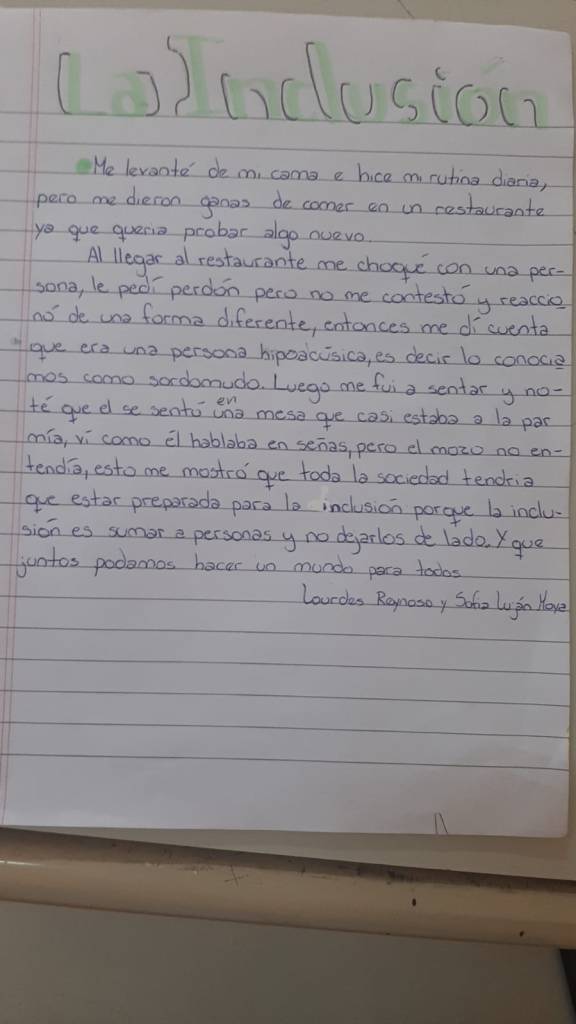 La Inclusión
Me levanté de mi cama e hice mi rutina diaria,
pero me dieron ganas de comer en un restaurante
ya que queria probar algo nuevo.
Al llegar al restaurante me choqué con una per-
sona, le pedí perdón pero no me contestó y reaccio
nó de una forma diferente, entonces me di cuenta
que era una persona hipoacúsica, es decir lo conocia
mos como sordomudo. Luego me fui a sentar y no-
té que el se sentó en una mesa que casi estaba a la par
mía, ví como él hablaba en señas, pero el mozo no en-
tendía, esto me mostró que toda la sociedad tendria
que estar preparada para la inclusión porque la inclu-
sión es sumar a personas y no dejarlos de lado. Y que
juntos podamos hacer un mundo para todos
Lourdes Reynoso y Sofia Luján